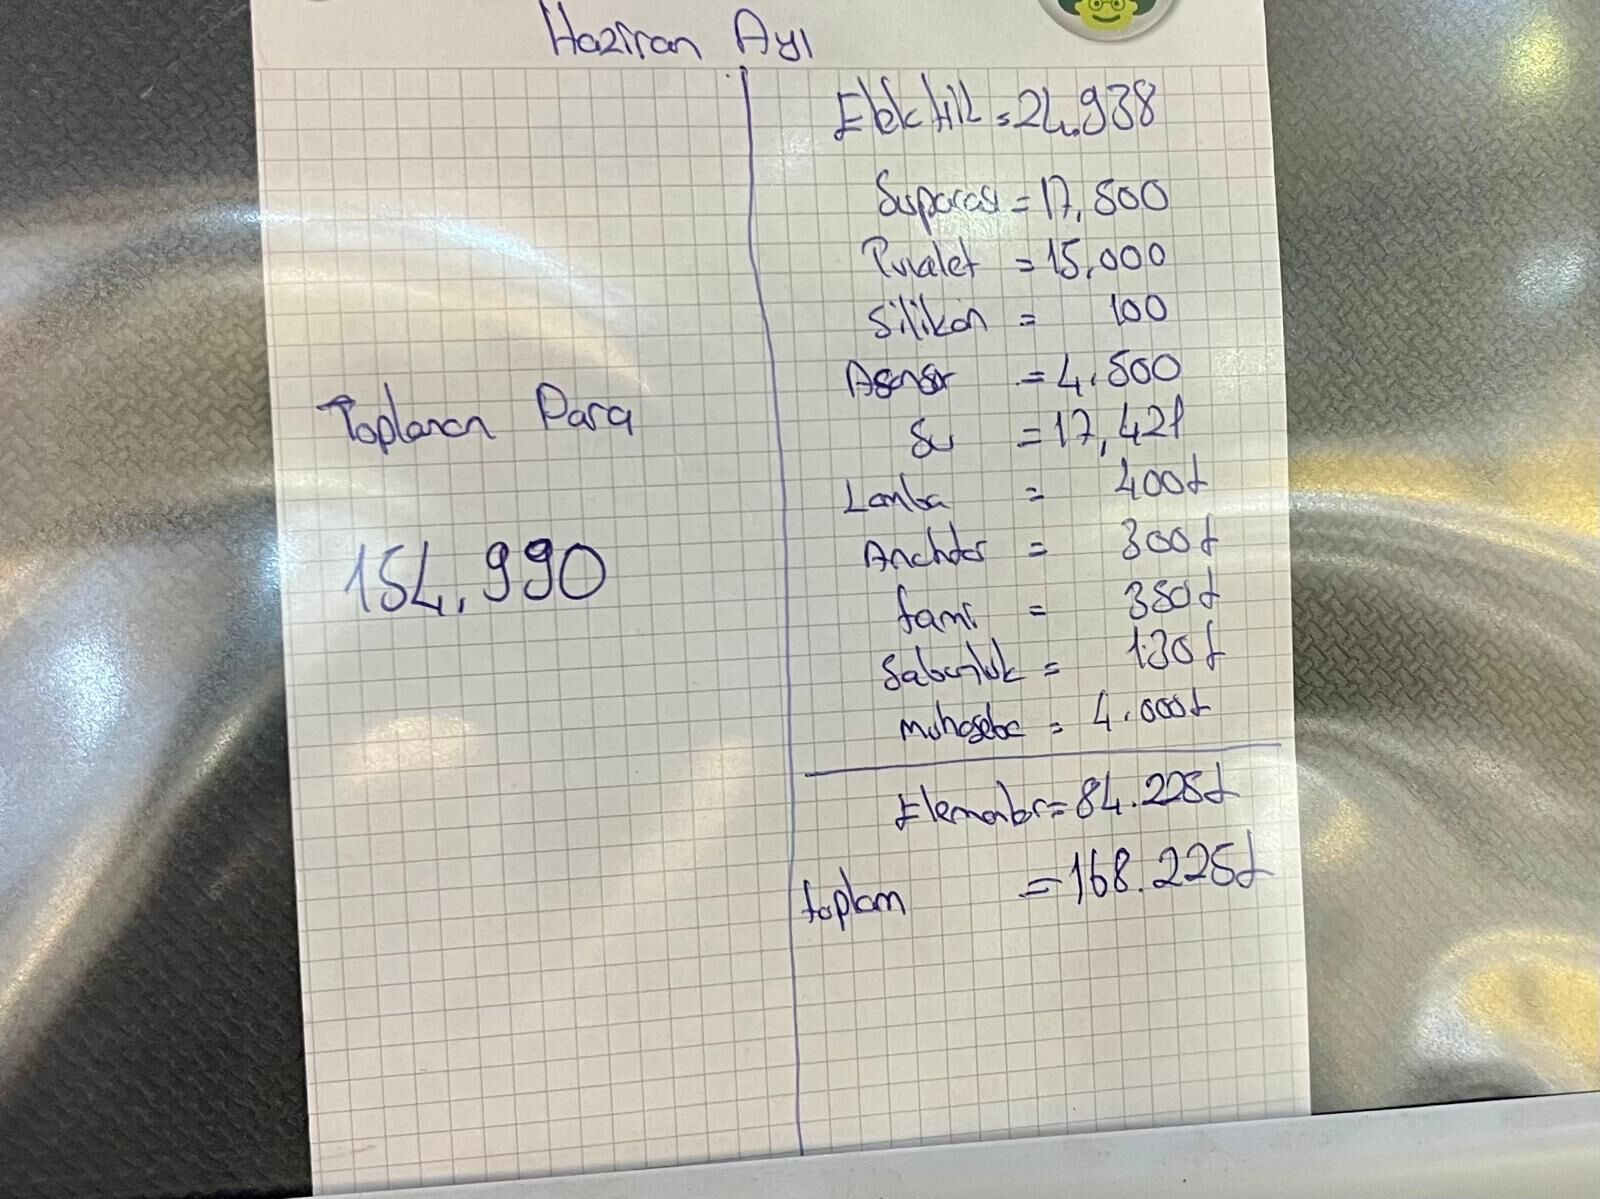 Haziran Ayı
Toplanan Para
154.990
Elektrik = 24.938
Suparası = 17,500
Tuvalet = 15,000
Silikon = 100
Asansör = 4.500
Su = 17,421
Lamba = 400₺
Anahtar = 300₺
Tamir = 350₺
Sabunluk = 130₺
Muhasebe = 4.000₺
Elemanlar = 84.225₺
toplam = 168.225₺